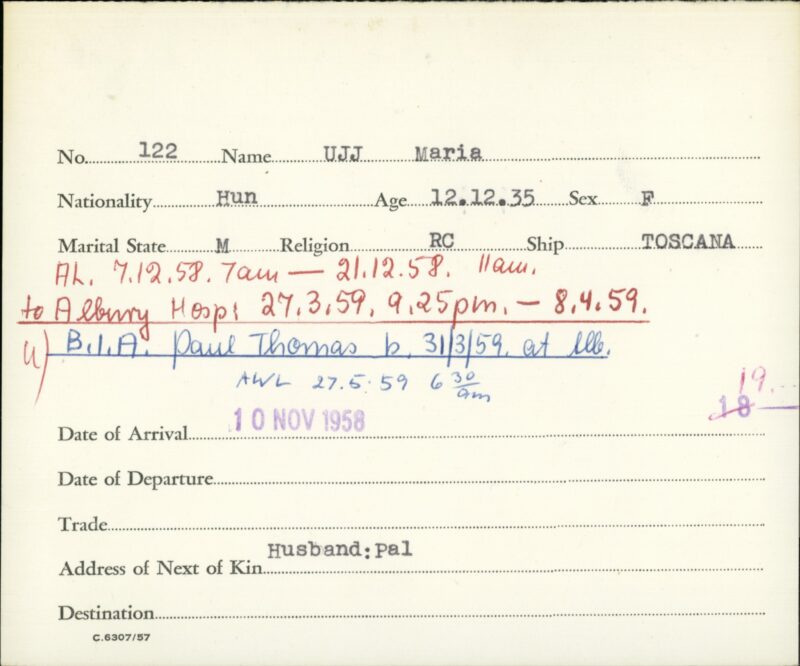 No. 122 Name UJJ Maria
Nationality Hun Age 12.12.35 Sex F
Marital State M Religion RC Ship TOSCANA
AL. 7.12.58. 7am — 21.12.58. 11am.
to Albury Hosp: 27.3.59. 9.25pm. — 8.4.59.
4) B.I.A. Paul Thomas b. 31/3/59. at Alb.
AWL 27.5.59 6 30 am
19.
18
Date of Arrival 10 NOV 1958
Date of Departure
Trade
Address of Next of Kin Husband: Pal
Destination
C.6307/57